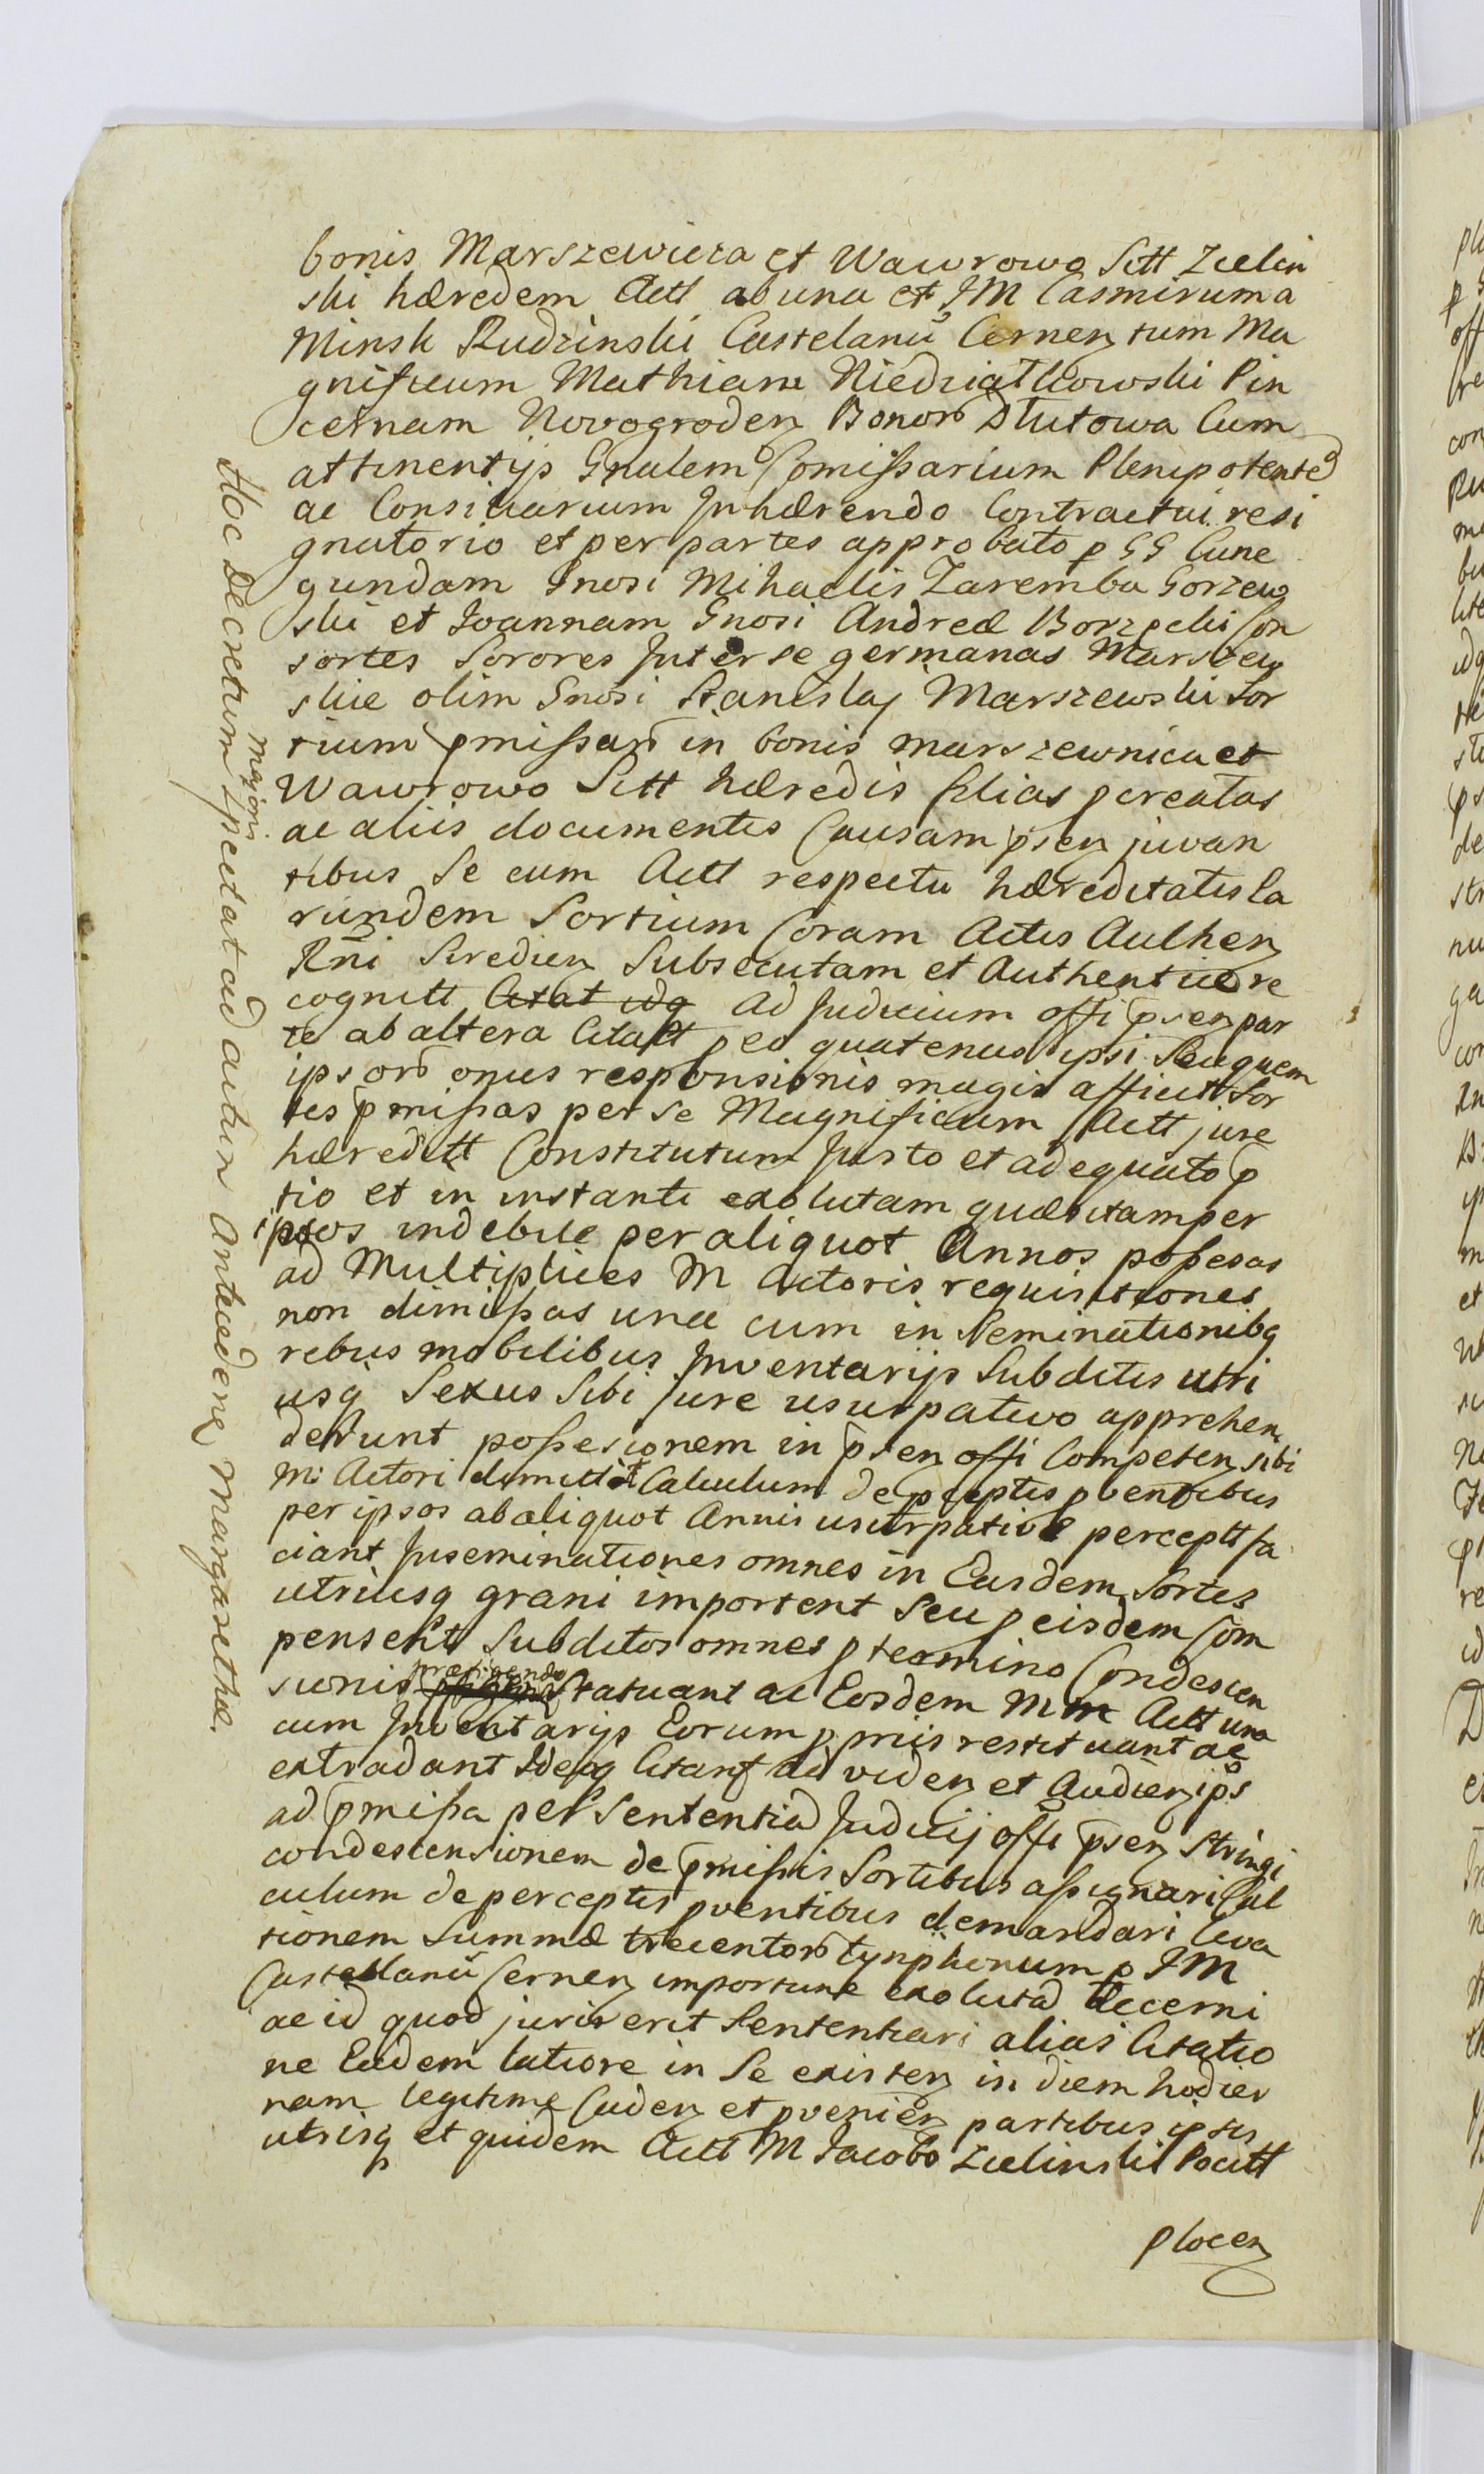 bonis Marszewicza et Wawrowo Sitt Zielin
ski hæredem Actt ab una et JM Casmirum a
Minsk Rudzinski Castelanũ Cernen tum Ma
gnificum Mathiam Niedziałkowski Pin
cernam Novogroden Bonor Dłutowa Cum
attinentijs Gnalem Comissarium Plenipotente
ac Consiliarium Inhærendo Contractui resi
gnatorio et per partes approbato p GG Cune
gundam Gnosi Mihaelis Zaremba Gorzew
ski et Joannam Gnosi Andreæ Borzecki Con
sortes Sorores Inter se germanas Marszew
skie olim Gnosi Stanislaj Marszewski Sor
tium pmissar in bonis Marszewnica et
Wawrowo Sitt hæredis filias pcreatas
ac aliis documentis Causam psen juvan
tibus Se cum Actt respectu hæreditatis Ea
rundem Sortium Coram Actis Authen
Rñi Siredien Subsecutam et Authentice re
cognitt Citat idq Ad Judicium offi psen par
te ab altera Citatt p eo quatenus ipsi Seu quem
ipsor onus responsionis magis afficit Sor
tes pmissas per se Magnificum Actt jure
hæreditt Constitutum Justo et adequato p
tio et in instanti exolutam quæsitam per
ipsos indebite per aliquot Annos possesas
ad Multiplices M Actoris requisitiones
non dimissas una cum in Seminationibq
rebus mobilibus Inventarijs Subditis utri
usq Sexus Sibi Jure usurpativo apprehen
derunt possesionem in psen offi Competen sibi
M Actori dimittāt Calculum de pceptis pventibus
per ipsos ab aliquot Annis usurpative perceptt fa
ciant Inseminationes omnes in Easdem Sortes
utriusq grani important Seu p eisdem Com
pensent Subditos omnes p termino Condescen
præfigendo
sionis Statuant ac Eosdem M Actt una
cum Inventarijs Eorum p priis restituant ac
extradant Ideoq Citant ad viden et Audien ips
ad pmissa per Sententiā Judicij offi psen Stringi
condescensionem de pmissis Sortibus assignari Cal
culum de perceptis pventibus demandari Eva
sionem Summæ trecentor tynphonum p JM
Castellanũ Cernen importune exolutā decerni
ac id quod juris erit Sententiari alias Citatio
ne Eadem latiore in Se existen in diem hodier
nam legitime Caden et pvenien partibus ipsis
utrisq et quidem Actt M Jacobo Zielinski Pocitt
Plocen
Hoc Decretum spectat ad actum Anteceden Margarethæ.
majoris